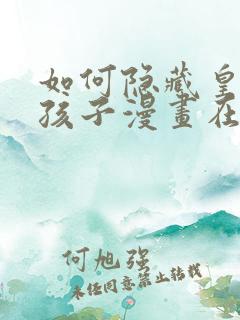 如何隐藏皇
孩子漫畫在
何旭强
未经同意禁止转载